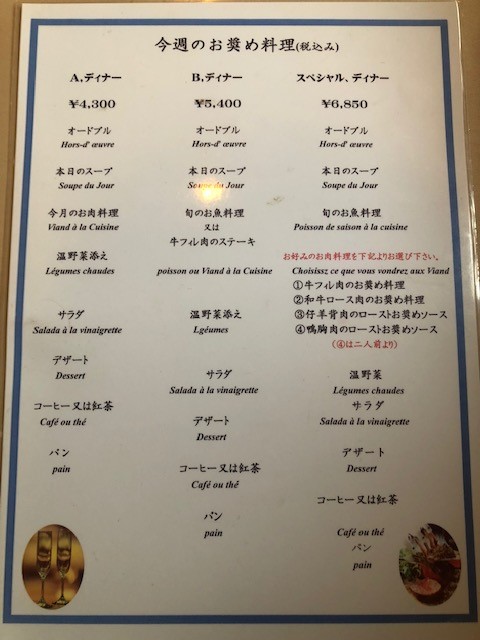 今週のお奨め料理(税込み)
A,ディナー
¥4,300
オードブル
Hors-d' œuvre
本日のスープ
Soupe du Jour
今月のお肉料理
Viand à la Cuisine
温野菜添え
Légumes chaudes
サラダ
Salada à la vinaigrette
デザート
Dessert
コーヒー又は紅茶
Café ou thé
パン
pain
B,ディナー
¥5,400
オードブル
Hors-d' œuvre
本日のスープ
Soupe du Jour
旬のお魚料理
又は
牛フィル肉のステーキ
poisson ou Viand à la Cuisine
温野菜添え
Lgéumes
サラダ
Salada à la vinaigrette
デザート
Dessert
コーヒー又は紅茶
Café ou thé
パン
pain
スペシャル、ディナー
¥6,850
オードブル
Hors-d' œuvre
本日のスープ
Soupe du Jour
旬のお魚料理
Poisson de saison à la cuisine
お好みのお肉料理を下記よりお選び下さい。
Choisissz ce que vous vondrez aux Viand
①牛フィル肉のお奨め料理
②和牛ロース肉のお奨め料理
③仔羊背肉のローストお奨めソース
④鴨胸肉のローストお奨めソース
(④は二人前より)
温野菜
Légumes chaudes
サラダ
Salada à la vinaigrette
デザート
Dessert
コーヒー又は紅茶
Café ou thé
パン
pain